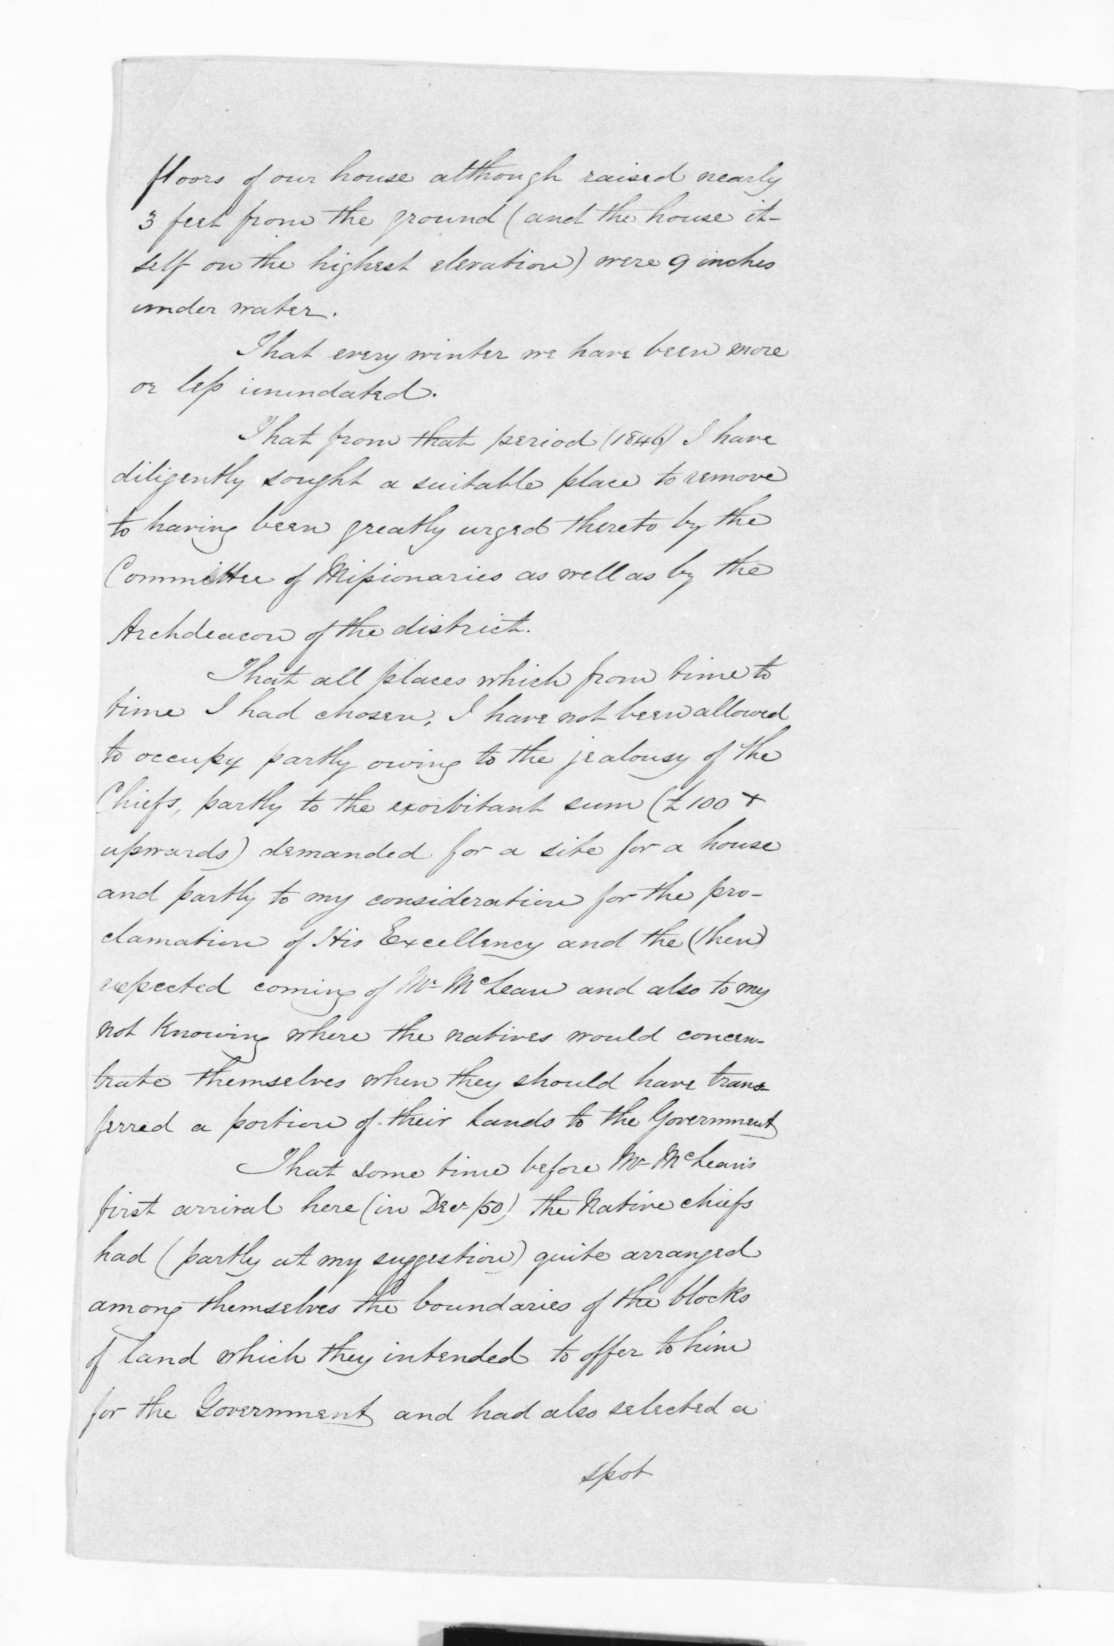 floors of our house although raised nearly
3 feet from the ground (and the house it-
self on the highest elevation) were 9 inches
under water.
That every winter we have been more
or less inundated.
That from that period (1846) I have
diligently sought a suitable place to remove
to having been greatly urged thereto by the
Committee of Missionaries as well as by the
Archdeacon of the district.
That all places which from time to
time I had chosen, I have not been allowed
to occupy partly owing to the jealousy of the
Chiefs, partly to the exorbitant sum (£100 +
upwards) demanded for a site for a house
and partly to my consideration for the pro-
clamation of His Excellency and the (then)
expected coming of Mr McLean and also to my
not knowing where the natives would concen-
trate themselves when they should have trans-
ferred a portion of their lands to the Government
That some time before Mr McLean's
first arrival here (in Decr /50) the Native chiefs
had (partly at my suggestion) quite arranged
among themselves the boundaries of the blocks
of land which they intended to offer to him
for the Government and had also selected a
spot